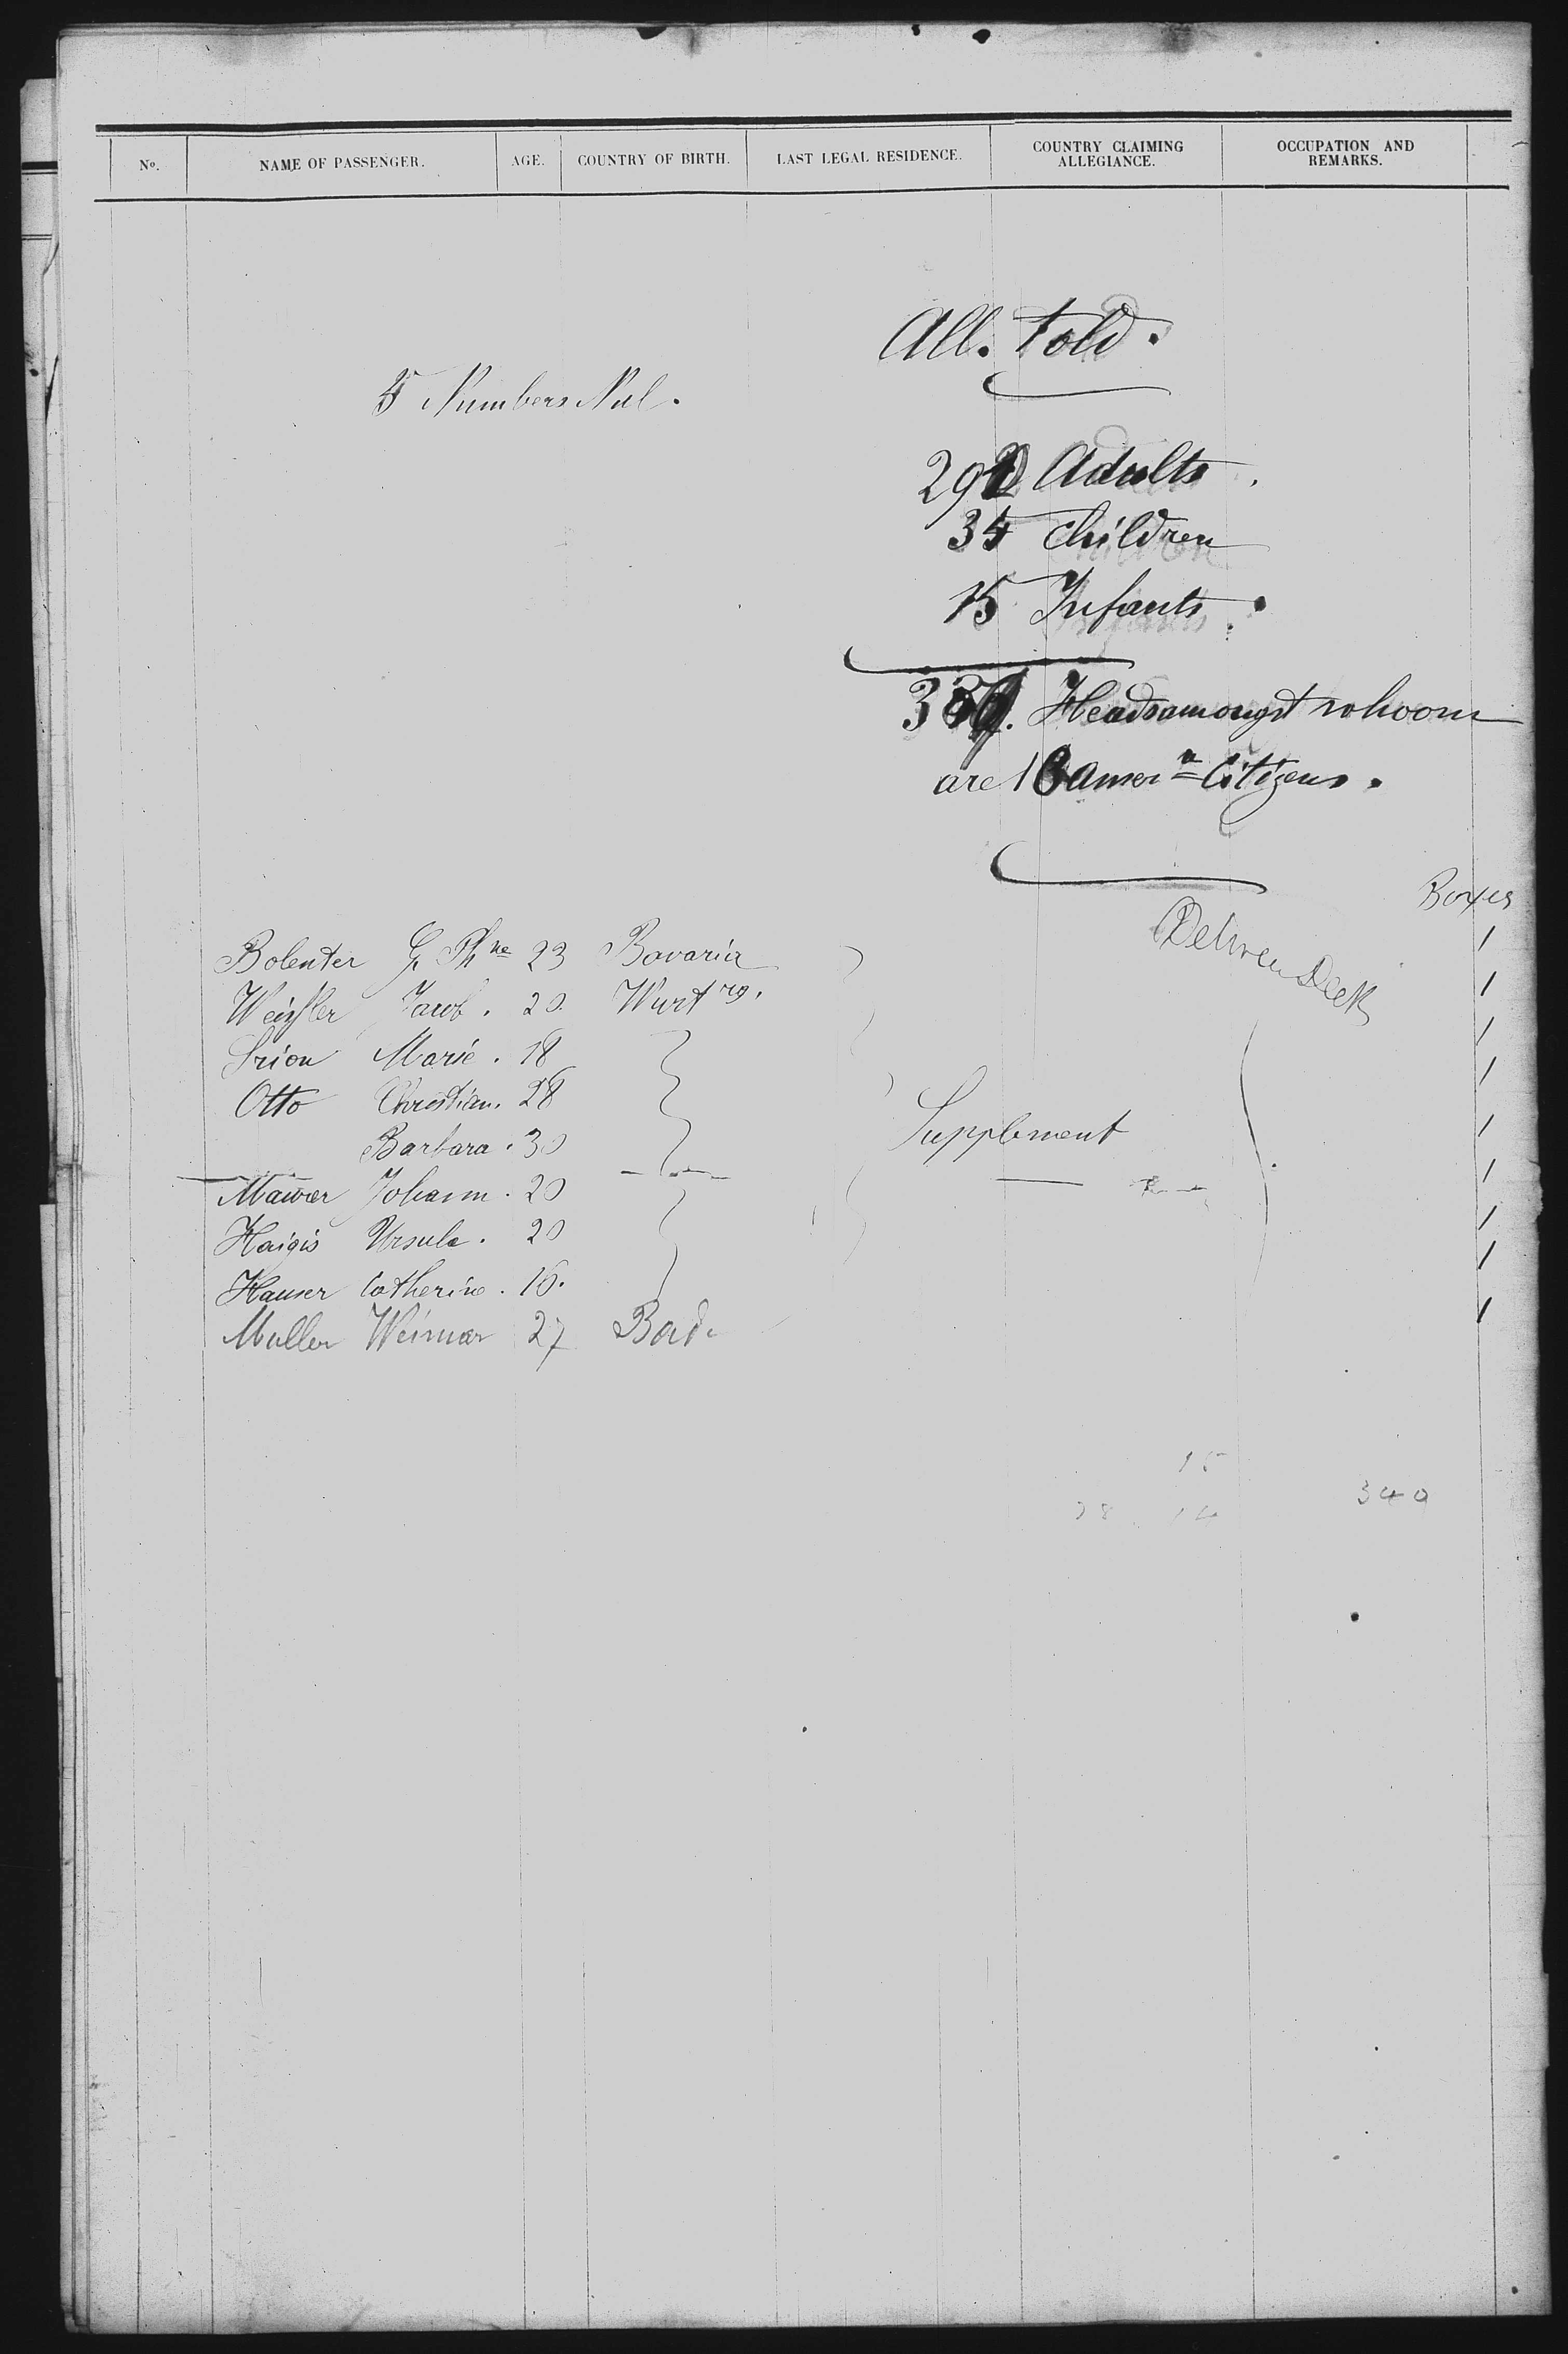 No. NAME OF PASSENGER. AGE. COUNTRY OF BIRTH. LAST LEGAL RESIDENCE. COUNTRY CLAIMING ALLEGIANCE. OCCUPATION AND REMARKS.
All. told.
5 Numbers Nul.
Adults.
34 Children
15 Infants.
Heads amongst whoom
are Citizens.
Boxes
Between Deck
Bolenter G Phne 23 Bavaria 1
Jacob. 20. Wurtrg. 1
Marie. 18 1
Otto Christian. 28 1
Barbara. 30 Supplement 1
Johann. 20 1
Haigis Ursula. 20 1
Hauser Catherine. 16. 1
Muller Weimar 27 Bad. 1
15
340